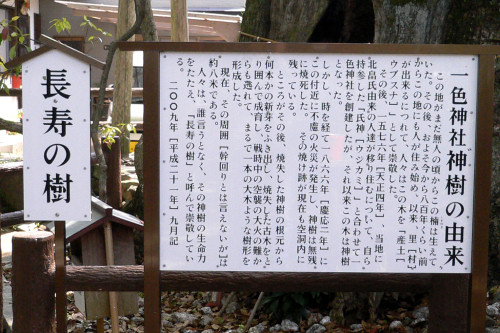 一色神社神樹の由来
この地がまだ無人の頃からこの楠は生えて
いた。その後、およそ今から八百年くらい前
からこの地にも人が住み始め、以来、里[村]
が出来るにつれて、人々はこの木を「産土[
ウブスナ]」として崇敬した。
その後、一五七六年[天正四年]、当地に
北畠氏由来の人々達が移り住むについて、自ら
持参した「氏神[ウジカミ]」と合わせて一
色神社を創建したが、それ以来この木は神樹
となった。
しかし、時を経て一八六六年[慶応二年]に
この付近に不慮の火災が発生し、神樹は無残
に焼死した。その焼け跡が現在も空洞内に
残っている。
ところがその後、焼失した神樹の根元から
何本かの新芽をふき出し、焼失した古木をと
り囲んで成育し、戦時中の空襲の大火の難か
らも逃れて、まるで一本の大木ような樹形を
形成した。
現在、その周囲[幹回りとは言えないが]は
約八米である。
人々は、誰言うとなく、その神樹の生命力
をたたえ、「長寿の樹」と呼んで崇敬している。
二〇〇九年[平成二十一年]九月記
長寿の樹